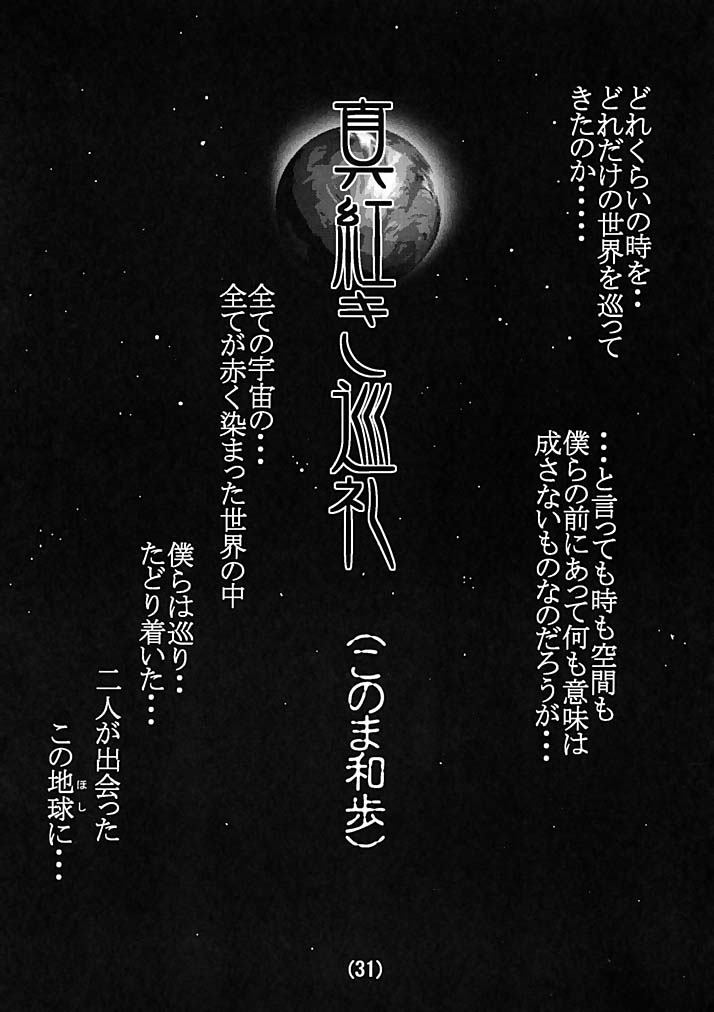 どれくらいの時を・・
どれだけの世界を巡って
きたのか・・・・・・
・・・と言っても時も空間も
僕らの前にあって何も意味は
成さないものなのだろうが・・・
真紅き し巡礼
(このま和歩)
全ての宇宙の・・・
全てが赤く染まった世界の中
僕らは巡り・・
たどり着いた・・・
二人が出会った
この地球に・・・
ほし
(31)